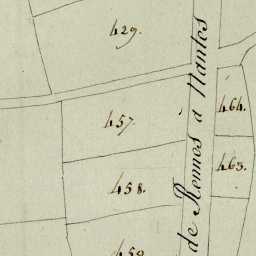 429.
457.
464.
463.
458.
459
de Rennes a Nantes